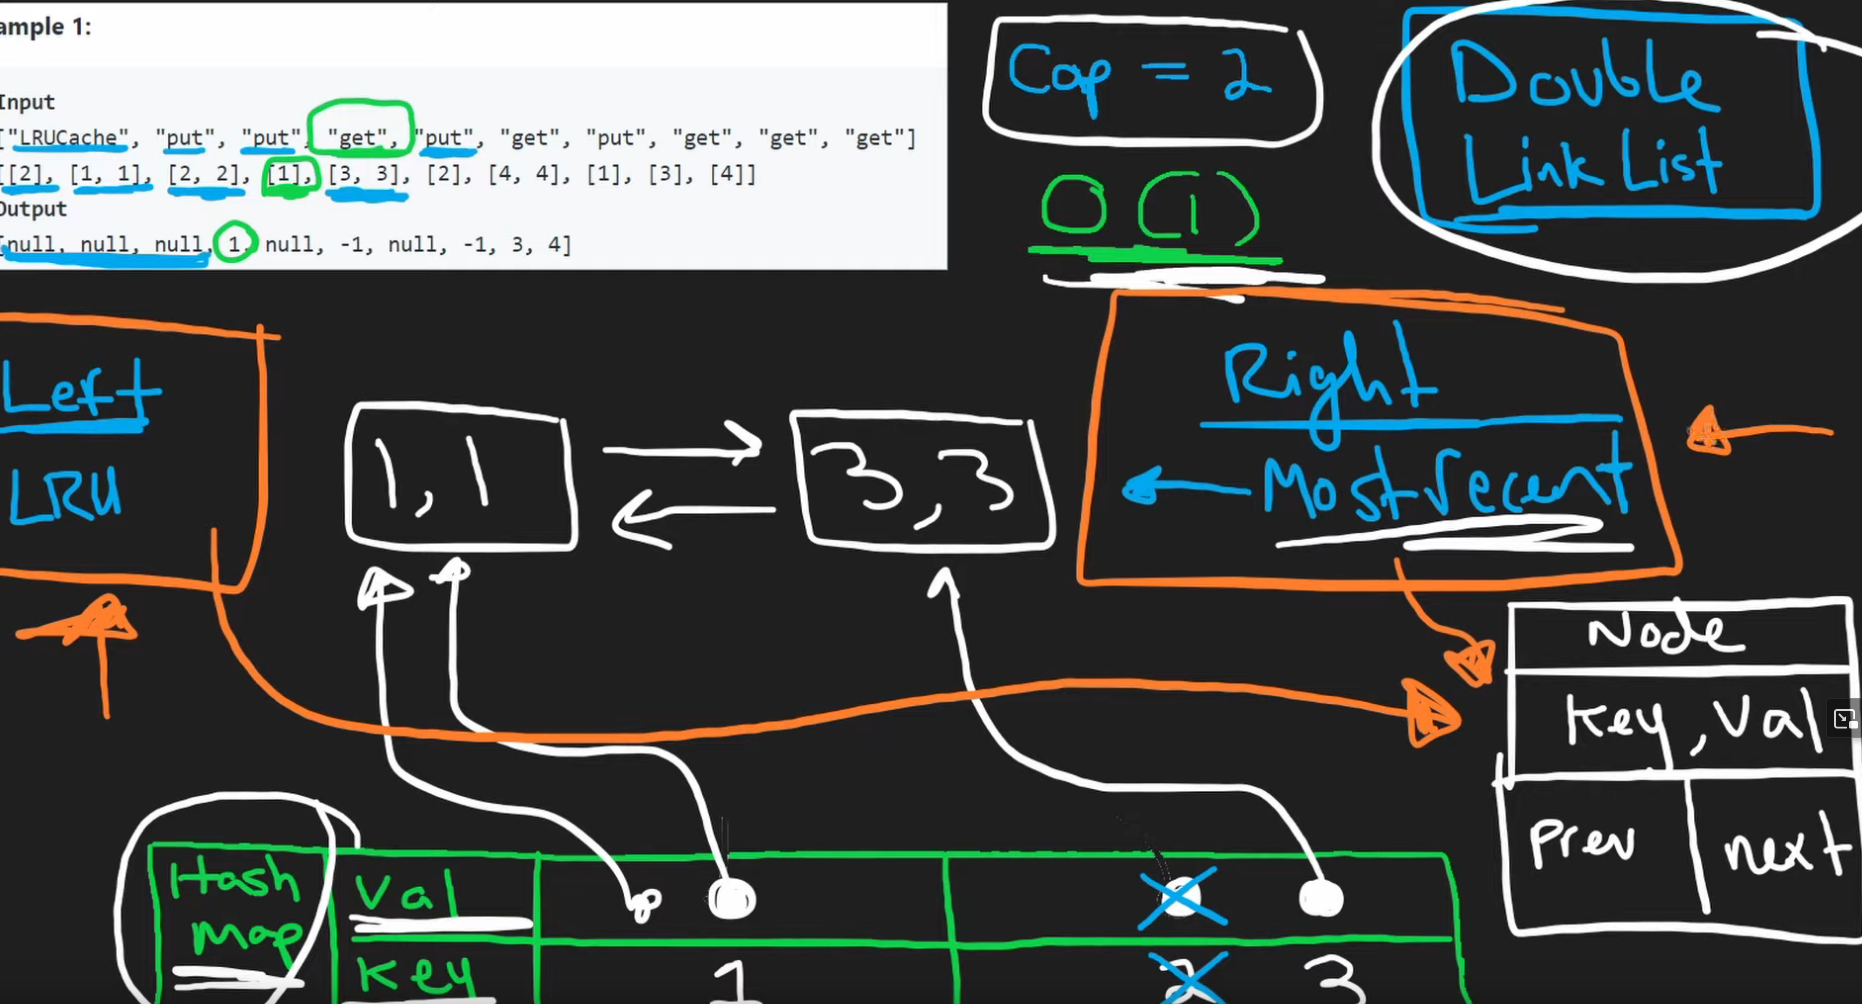 ample 1:
Input
["LRUCache", "put", "put", "get", "put", "get", "put", "get", "get", "get"]
[[2], [1, 1], [2, 2], [1], [3, 3], [2], [4, 4], [1], [3], [4]]
Output
[null, null, null, 1, null, -1, null, -1, 3, 4]
Cap = 2
O(1)
Double
Link List
Left
LRU
1,1
3,3
Right
Most recent
Node
Key, Val
Prev next
Hash
Map
Val
Key 1 2 3